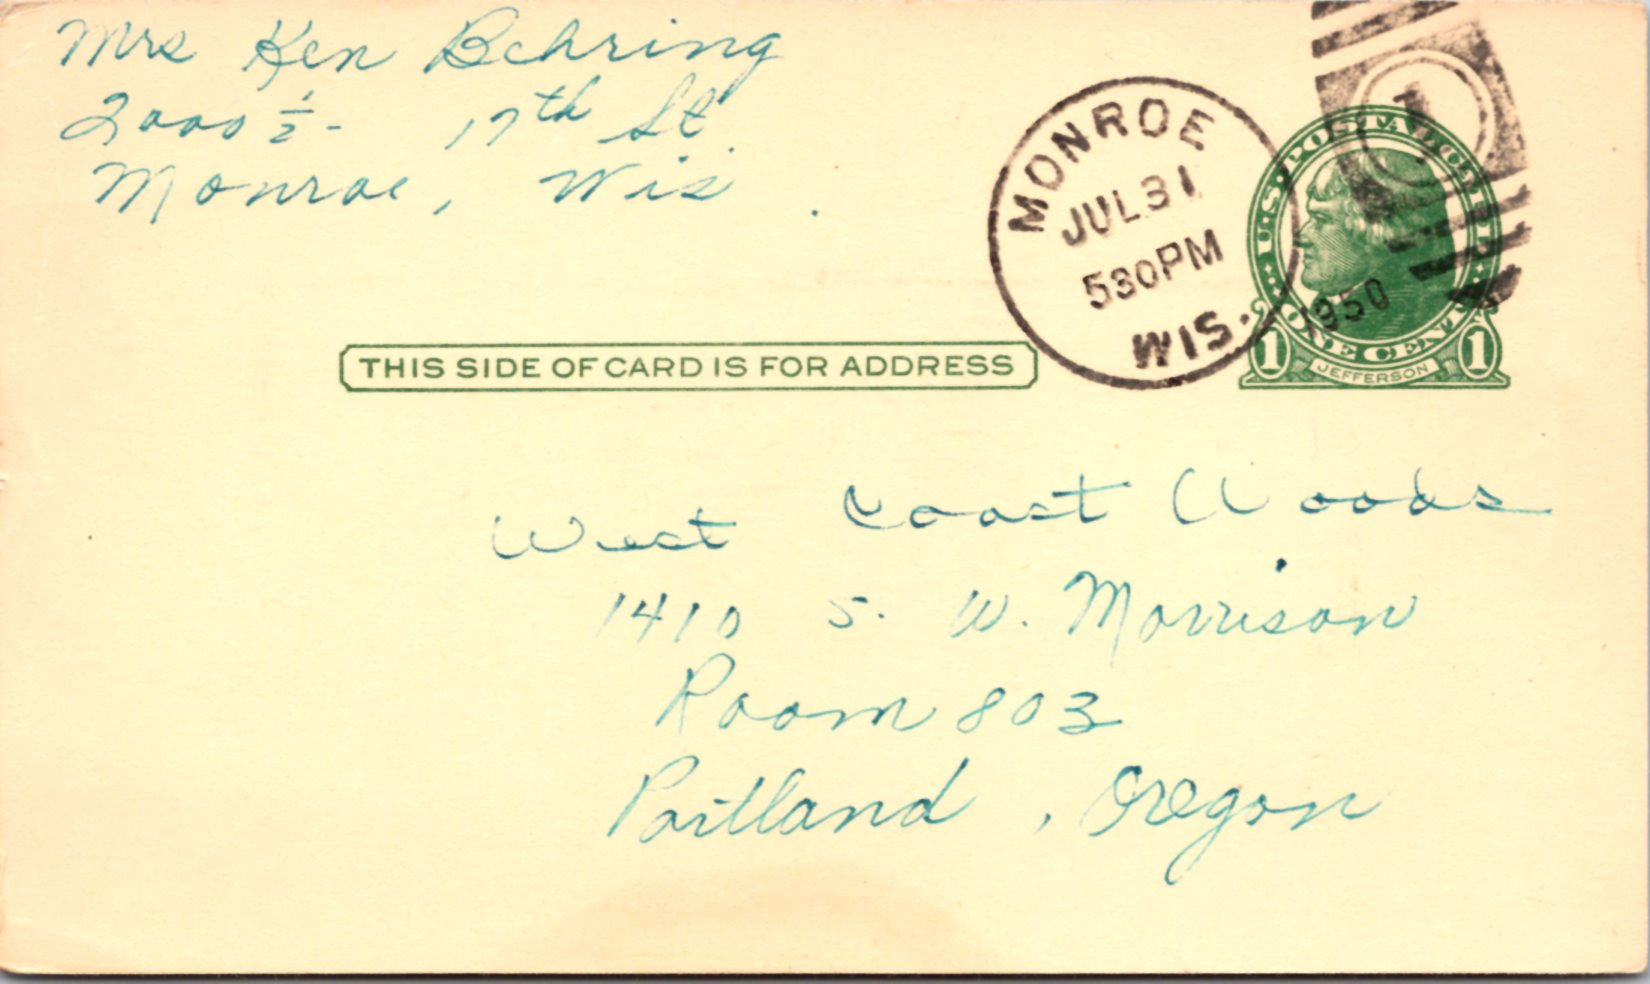 Mrs Ken Behring
2000 ½ - 17th St.
Monroe, Wis.
MONROE
JUL 31
530 PM
1950
WIS.
U.S. POSTAL CARD
ONE CENT
1 JEFFERSON 1
THIS SIDE OF CARD IS FOR ADDRESS
West Coast Woods
1410 S. W. Morrison
Room 803
Portland, Oregon